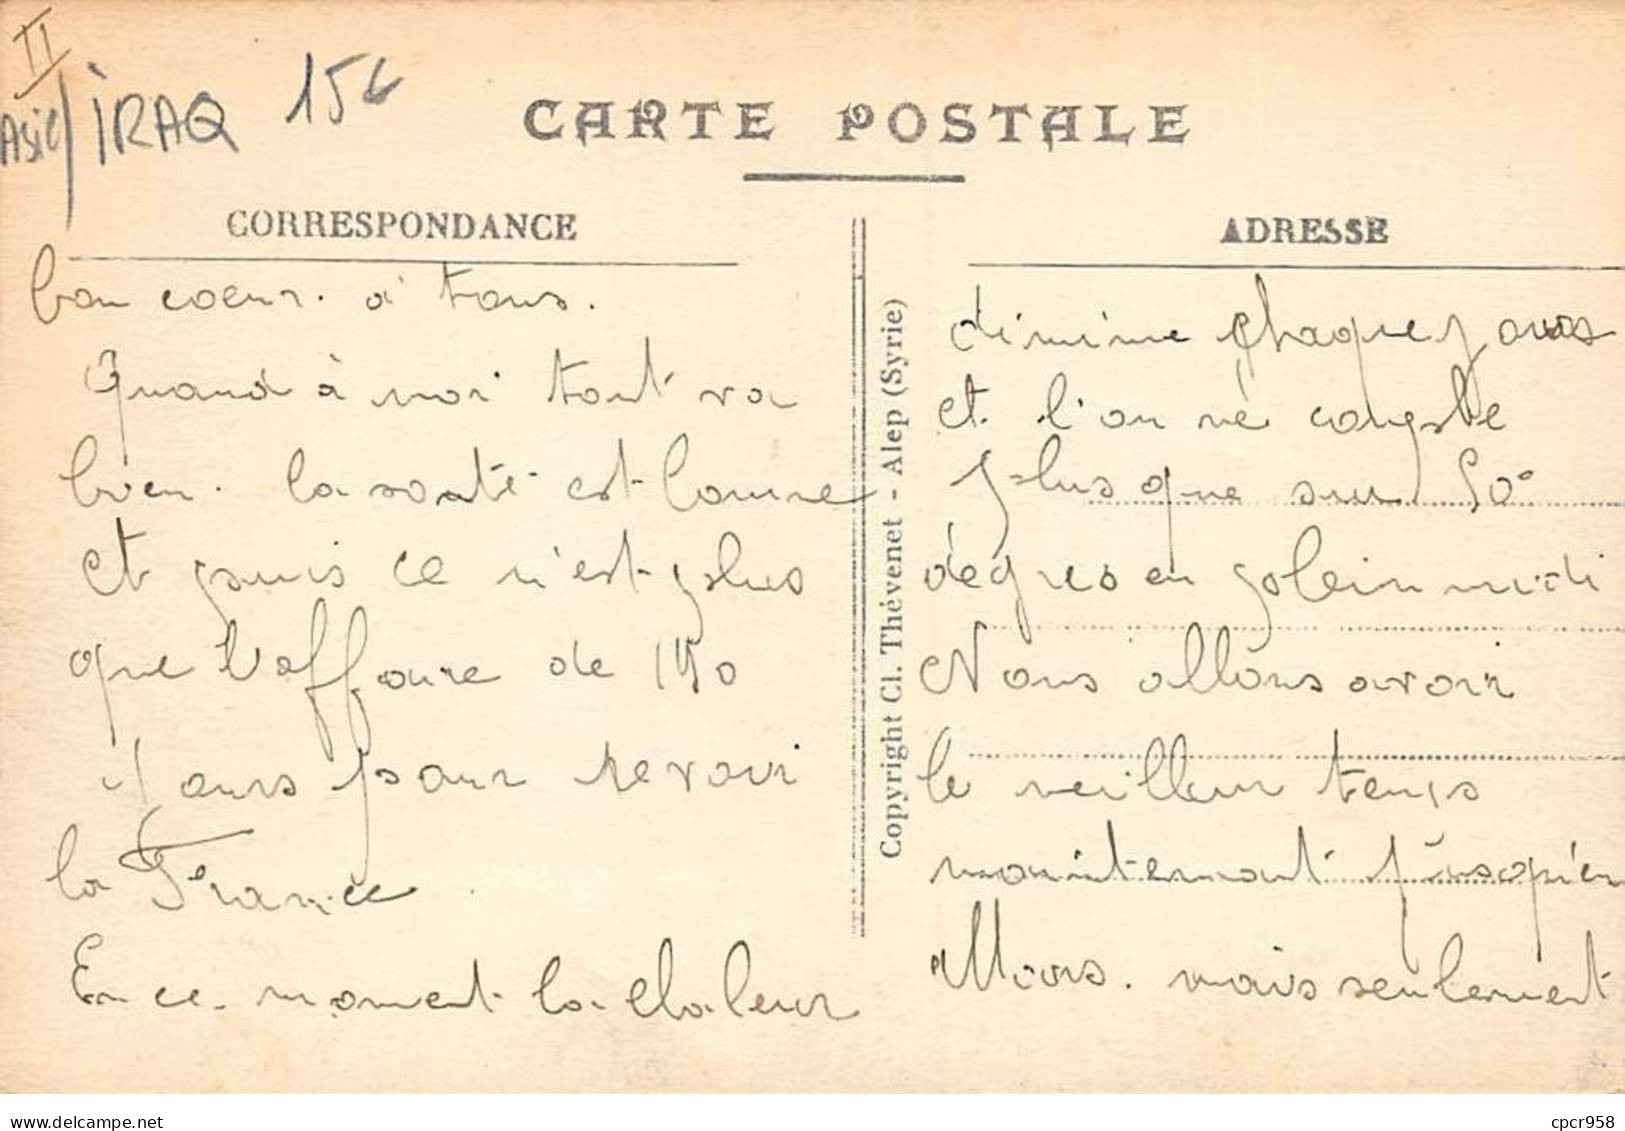 II
Asie/IRAQ 15€
CARTE POSTALE
CORRESPONDANCE
bon coeur. à tous.
Quand à moi tout va
bien. la santé est bonne
et puis ce n'est plus
que l'affaire de 140
jours pour revoir
la France
En ce moment la chaleur
Copyright Cl. Thévenet - Alep (Syrie)
ADRESSE
diminue chaque jours
et l'on ne compte
plus que sur 50°
dégres en plein midi
Nous allons avoir
le meilleur temps
maintenant jusqu'en
Mars. mais seulement
cpcr958